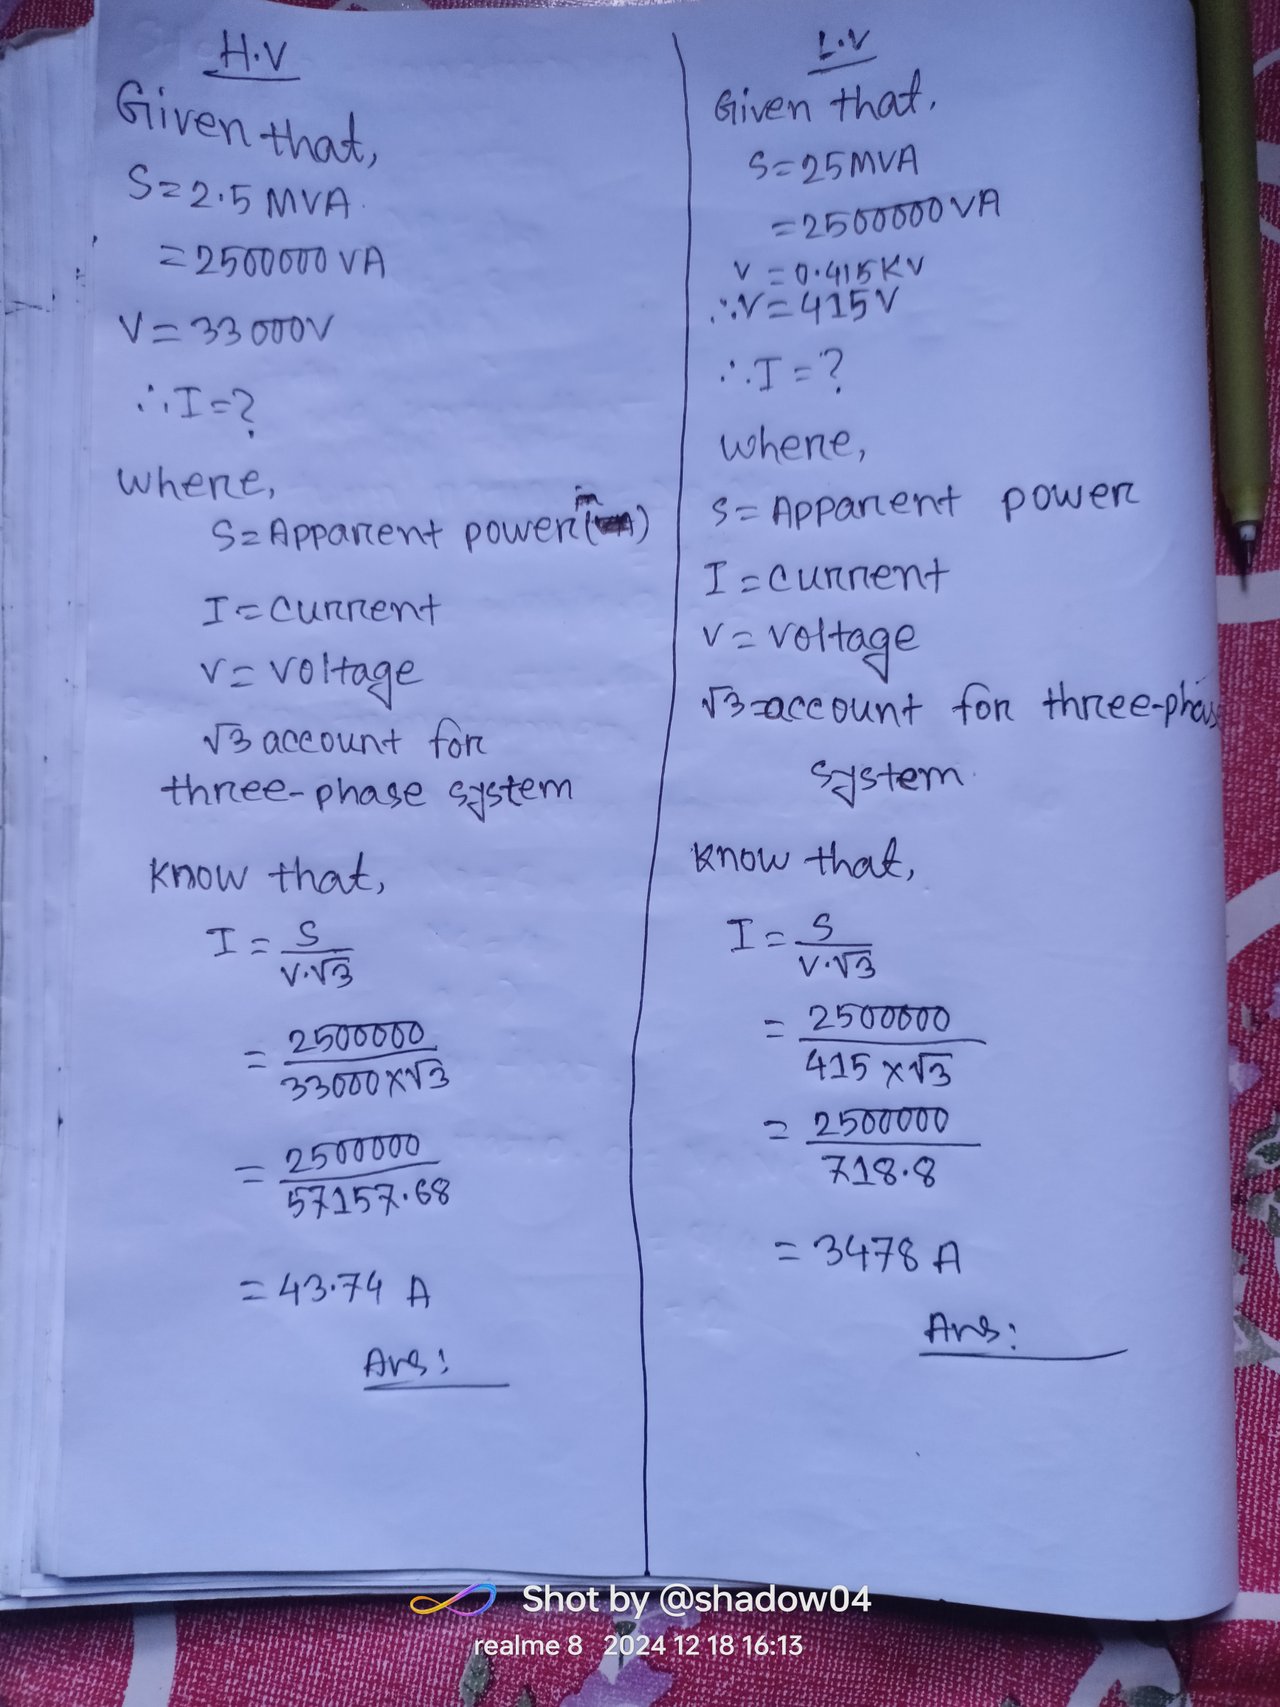 H.V
Given that,
S=2.5 MVA.
=2500000 VA
V=33000V
∴I=?
where,
S=Apparent power(in )
I=current
V=voltage
√3 account for
three-phase system
Know that,
I = S/V.√3
= 2500000/33000×√3
= 2500000/57157.68
= 43.74 A
Ans:
L.V
Given that.
S=25MVA
=2500000VA
V=0.415KV
∴V=415V
∴I=?
where,
S=Apparent power
I=current
V=voltage
√3=account for three-phase
system.
Know that,
I = S/V.√3
= 2500000/415×√3
= 2500000/718.8
= 3478 A
Ans:
Shot by @shadow04
realme 8 2024 12 18 16:13